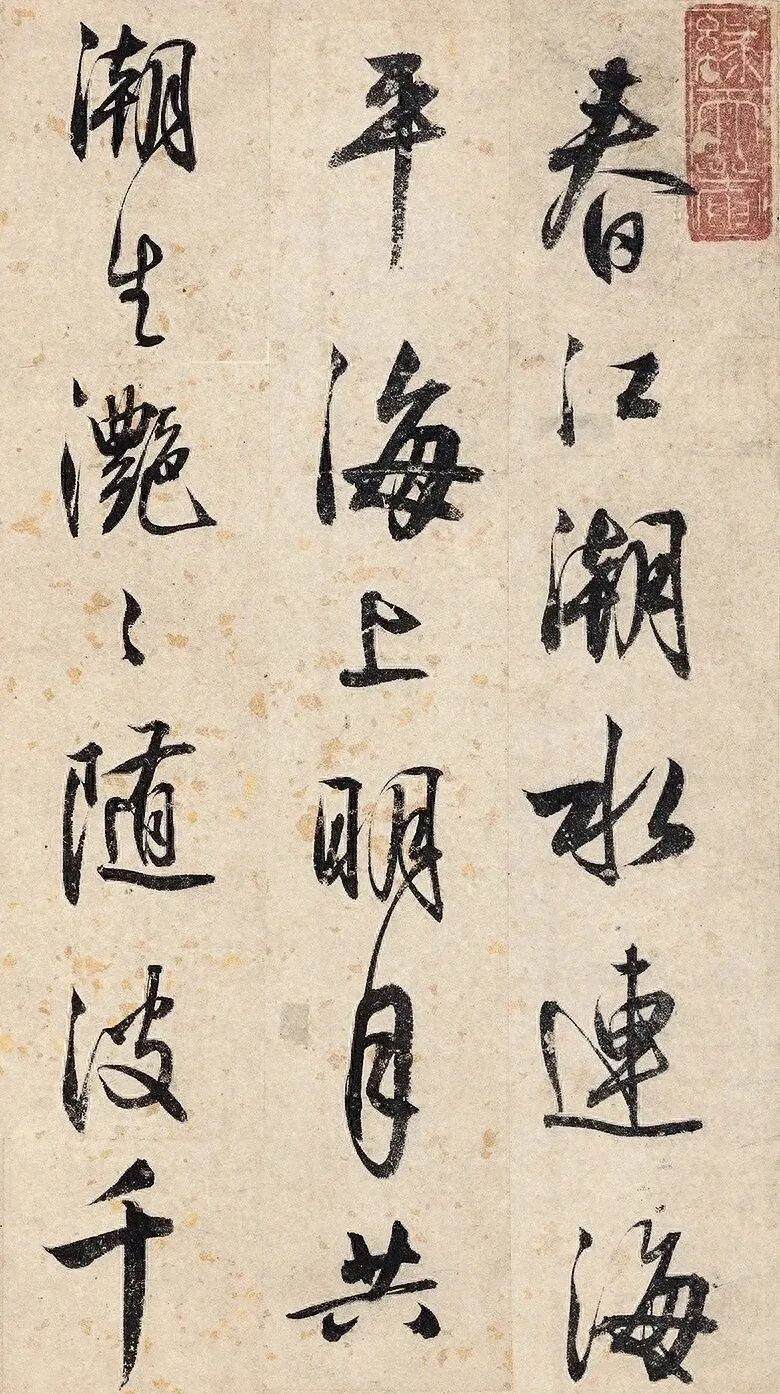 春江潮水連海
平海上明月共
潮生灔〻随波千